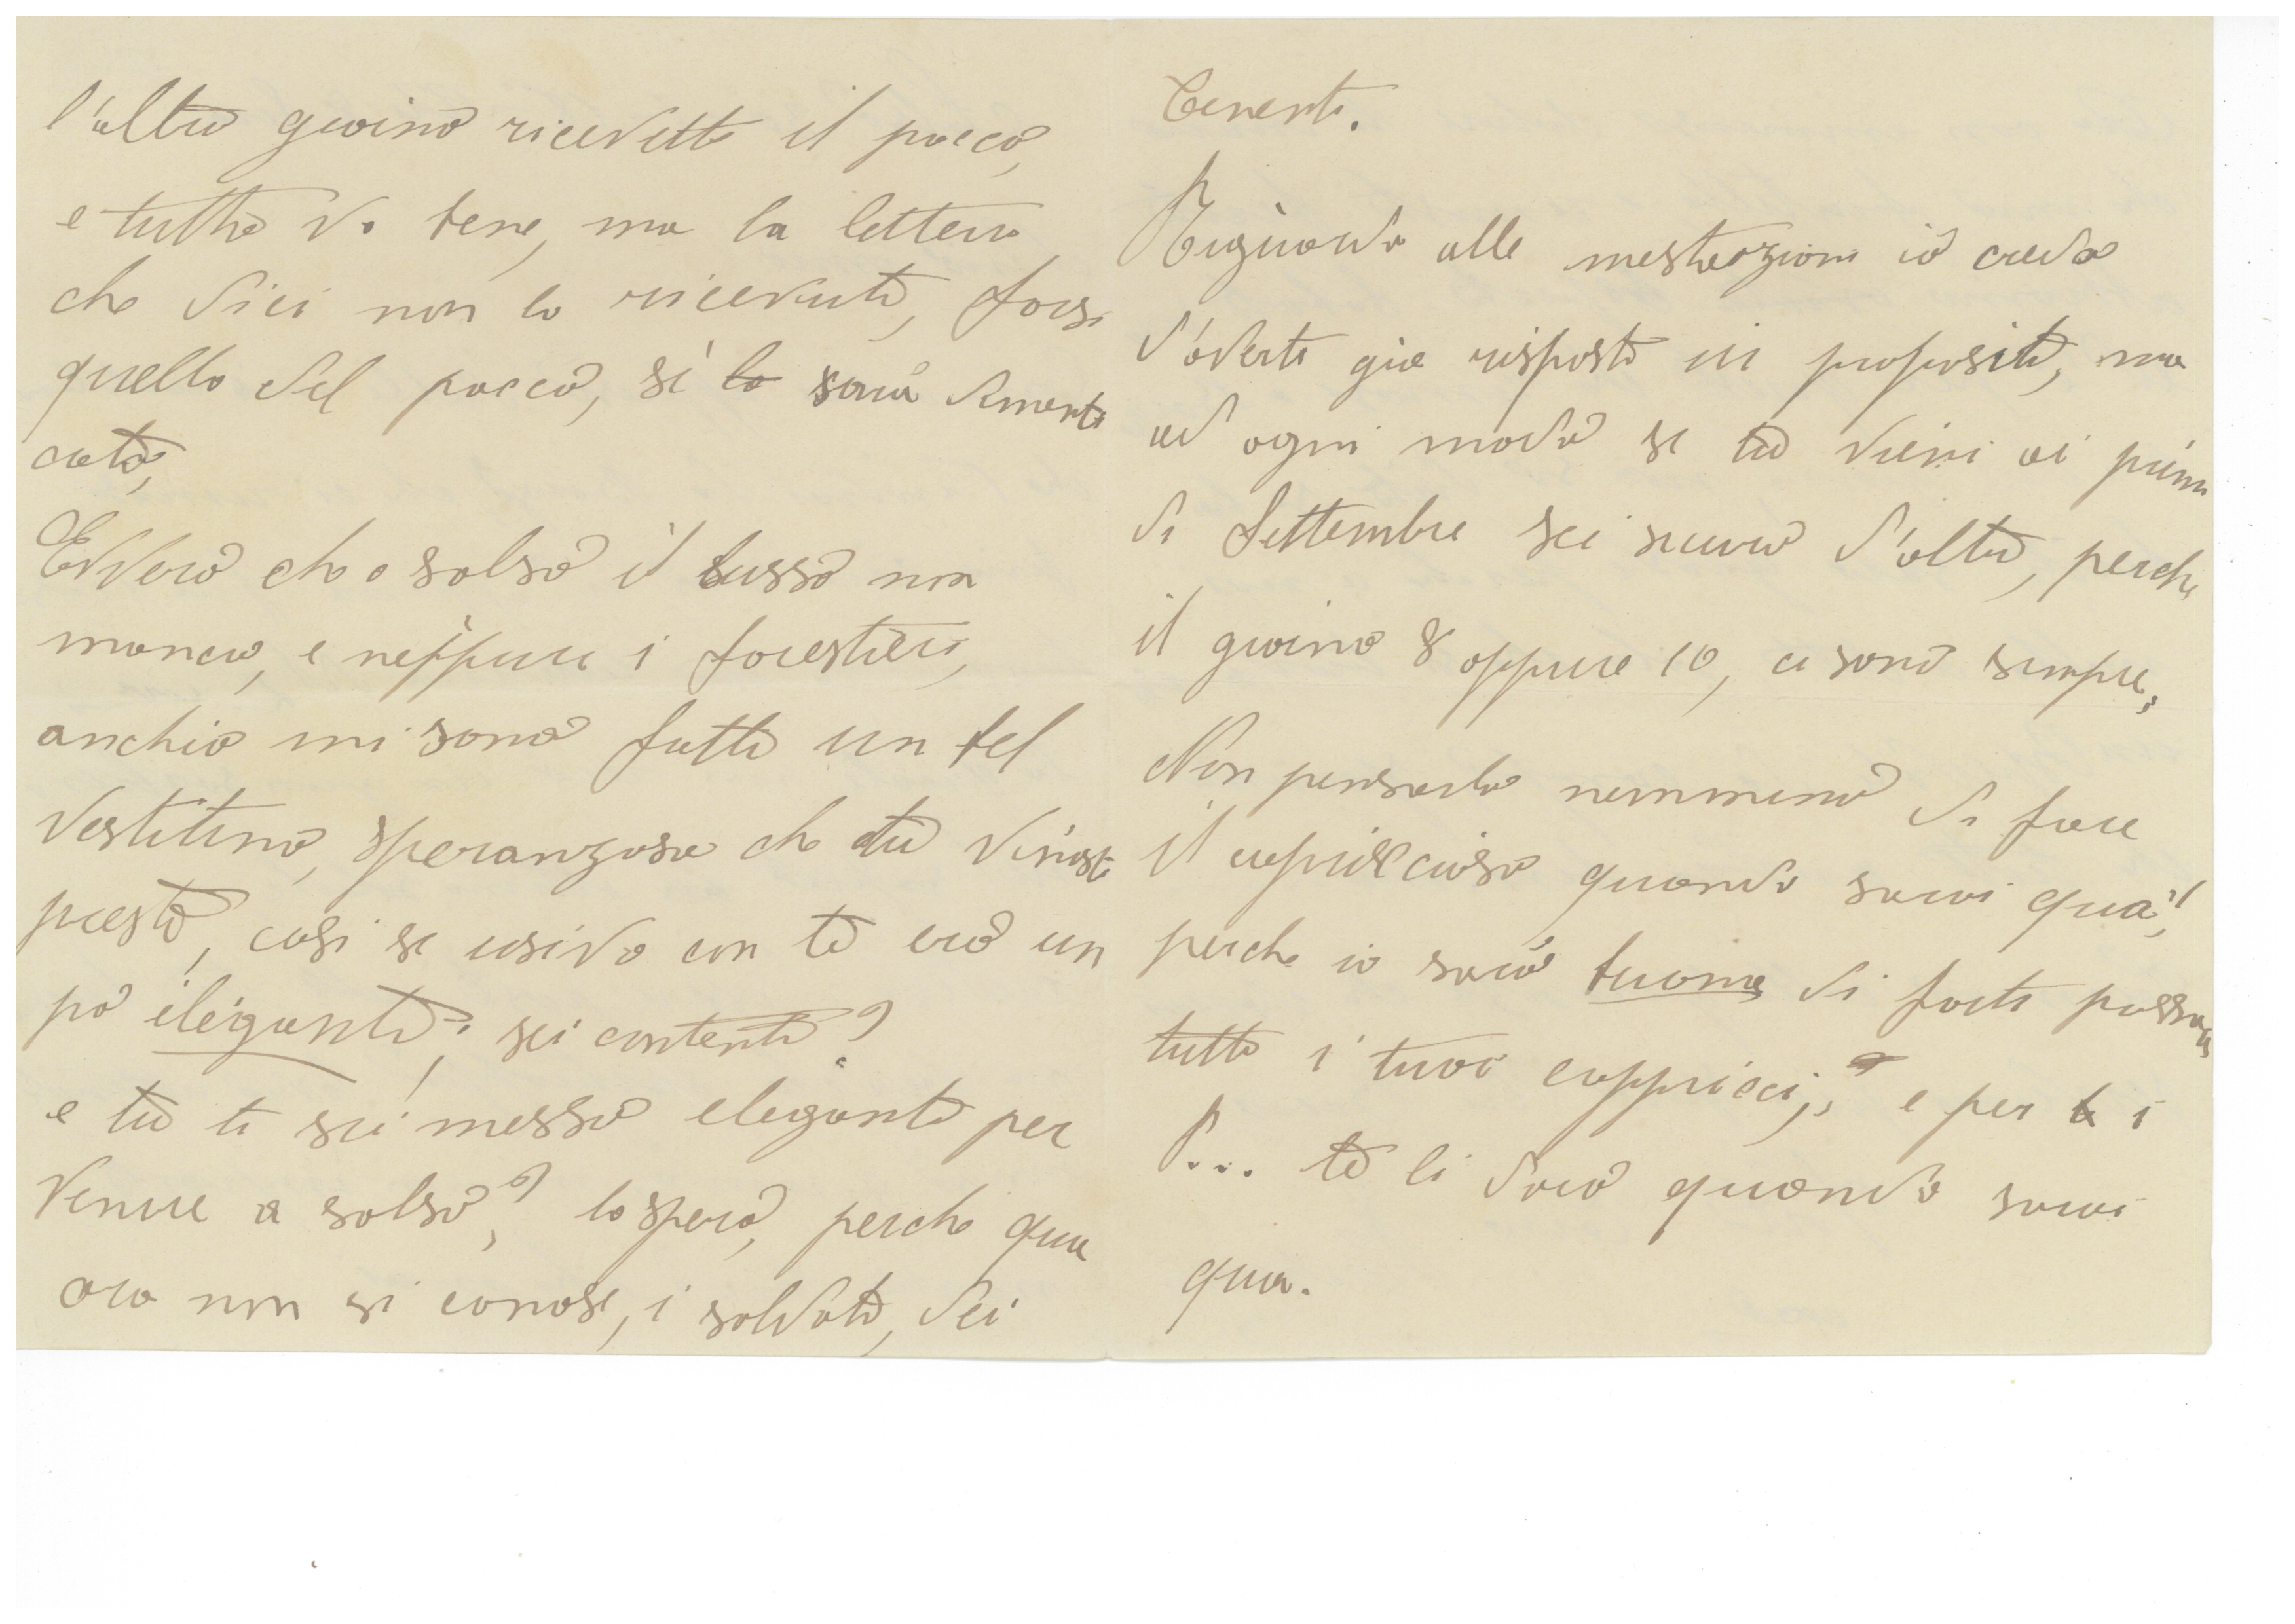 l'altro giorno ricevetti il pacco,
e tutto va bene, ma la lettera
che dici non lo ricevuto, forsi
quello del pacco, si lo sarà dimenti
cato,
Evvero che a salso il lusso non
manca, e neppure i forestieri,
anchio mi sono fatto un bel
vestitino, speranzosa che tu vinisti
presto, cosi se usivo con te ero un
pò elegante; sei contento?
e tu ti sei messo elegante per
venire a salso,? lo spero, perche qua
ora non si conose, i soldato, dei
Tenenti.
Riguardo alle mestruazioni io credo
d'averti gia risposto in proposito, ma
ad ogni modo se tu vieni ai primi
di Settembre sei sicuro d'altro, perche
il giorno 8 oppure 10, ci sono sempre,
Non pensarlo nemmeno di fare
il capriccioso quando sarai quà!,
perche io sarò buona di farti passare
tutti i tuoi cappricci,, e per i
P... te li darò quando sarai
qua.